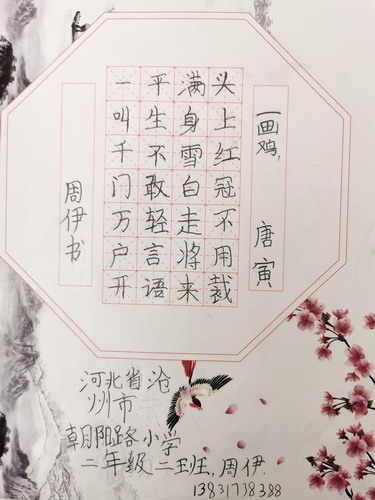 画鸡, 唐寅
头上红冠不用裁
满身雪白走将来
平生不敢轻言语
一叫千门万户开
周伊书
河北省沧
州市
朝阳路小学
二年级二班,周伊
13831738388